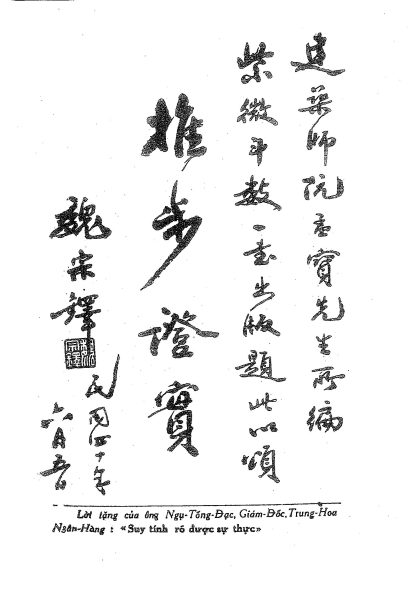 建築師阮孟寶先生所編
紫微斗數一書出版題此以頌
推步證實
魏宗鐸
民國四十年
六月五日
Lời tặng của ông Ngụ-Tông-Đạc, Giám-Đốc, Trung-Hoa
Ngân-Hàng : «Suy tính rõ được sự thực»